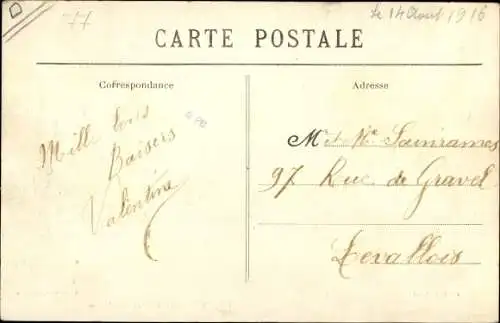 D
77
Le 14 Aout 1916
CARTE POSTALE
Correspondance
Adresse
Mille bons
Baisers
Valentine
Mr et Me
97 Rue de Gravel
Levallois